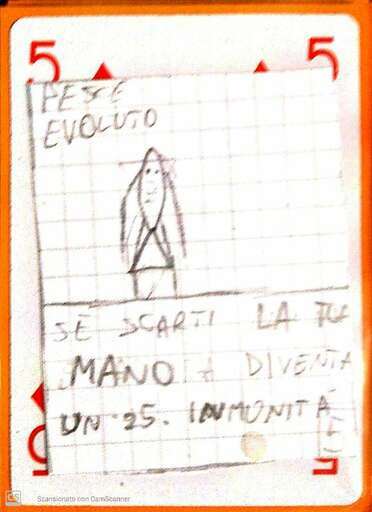 5 5
PESCE
EVOLUTO
SE SCARTI LA TUA
MANO DIVENTA
UN 25. INMUNITÀ
5 5
CS Scansionato con CamScanner